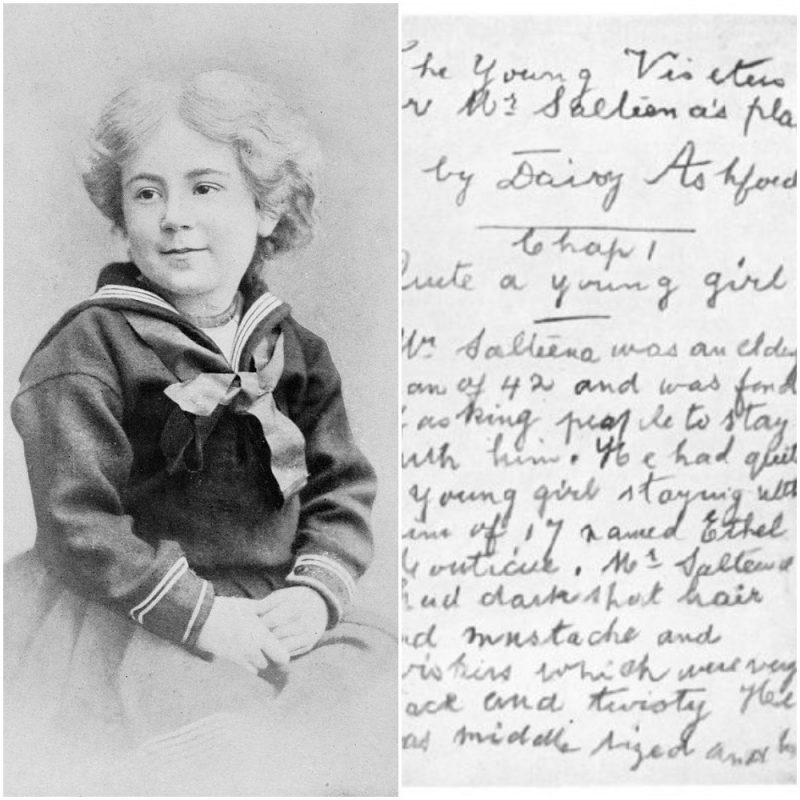 he Young Viseters
r Mr Salteena's pla
by Daisy Ashford
Chap 1
Quite a young girl
Mr Salteena was an elder
an of 42 and was fond
asking people to stay
ith him. He had quit
young girl staying with
im of 17 named Ethel
onticue. Mr Salteena
had dark short hair
nd mustache and
iskers which were very
ack and twisty He
as middle sized and